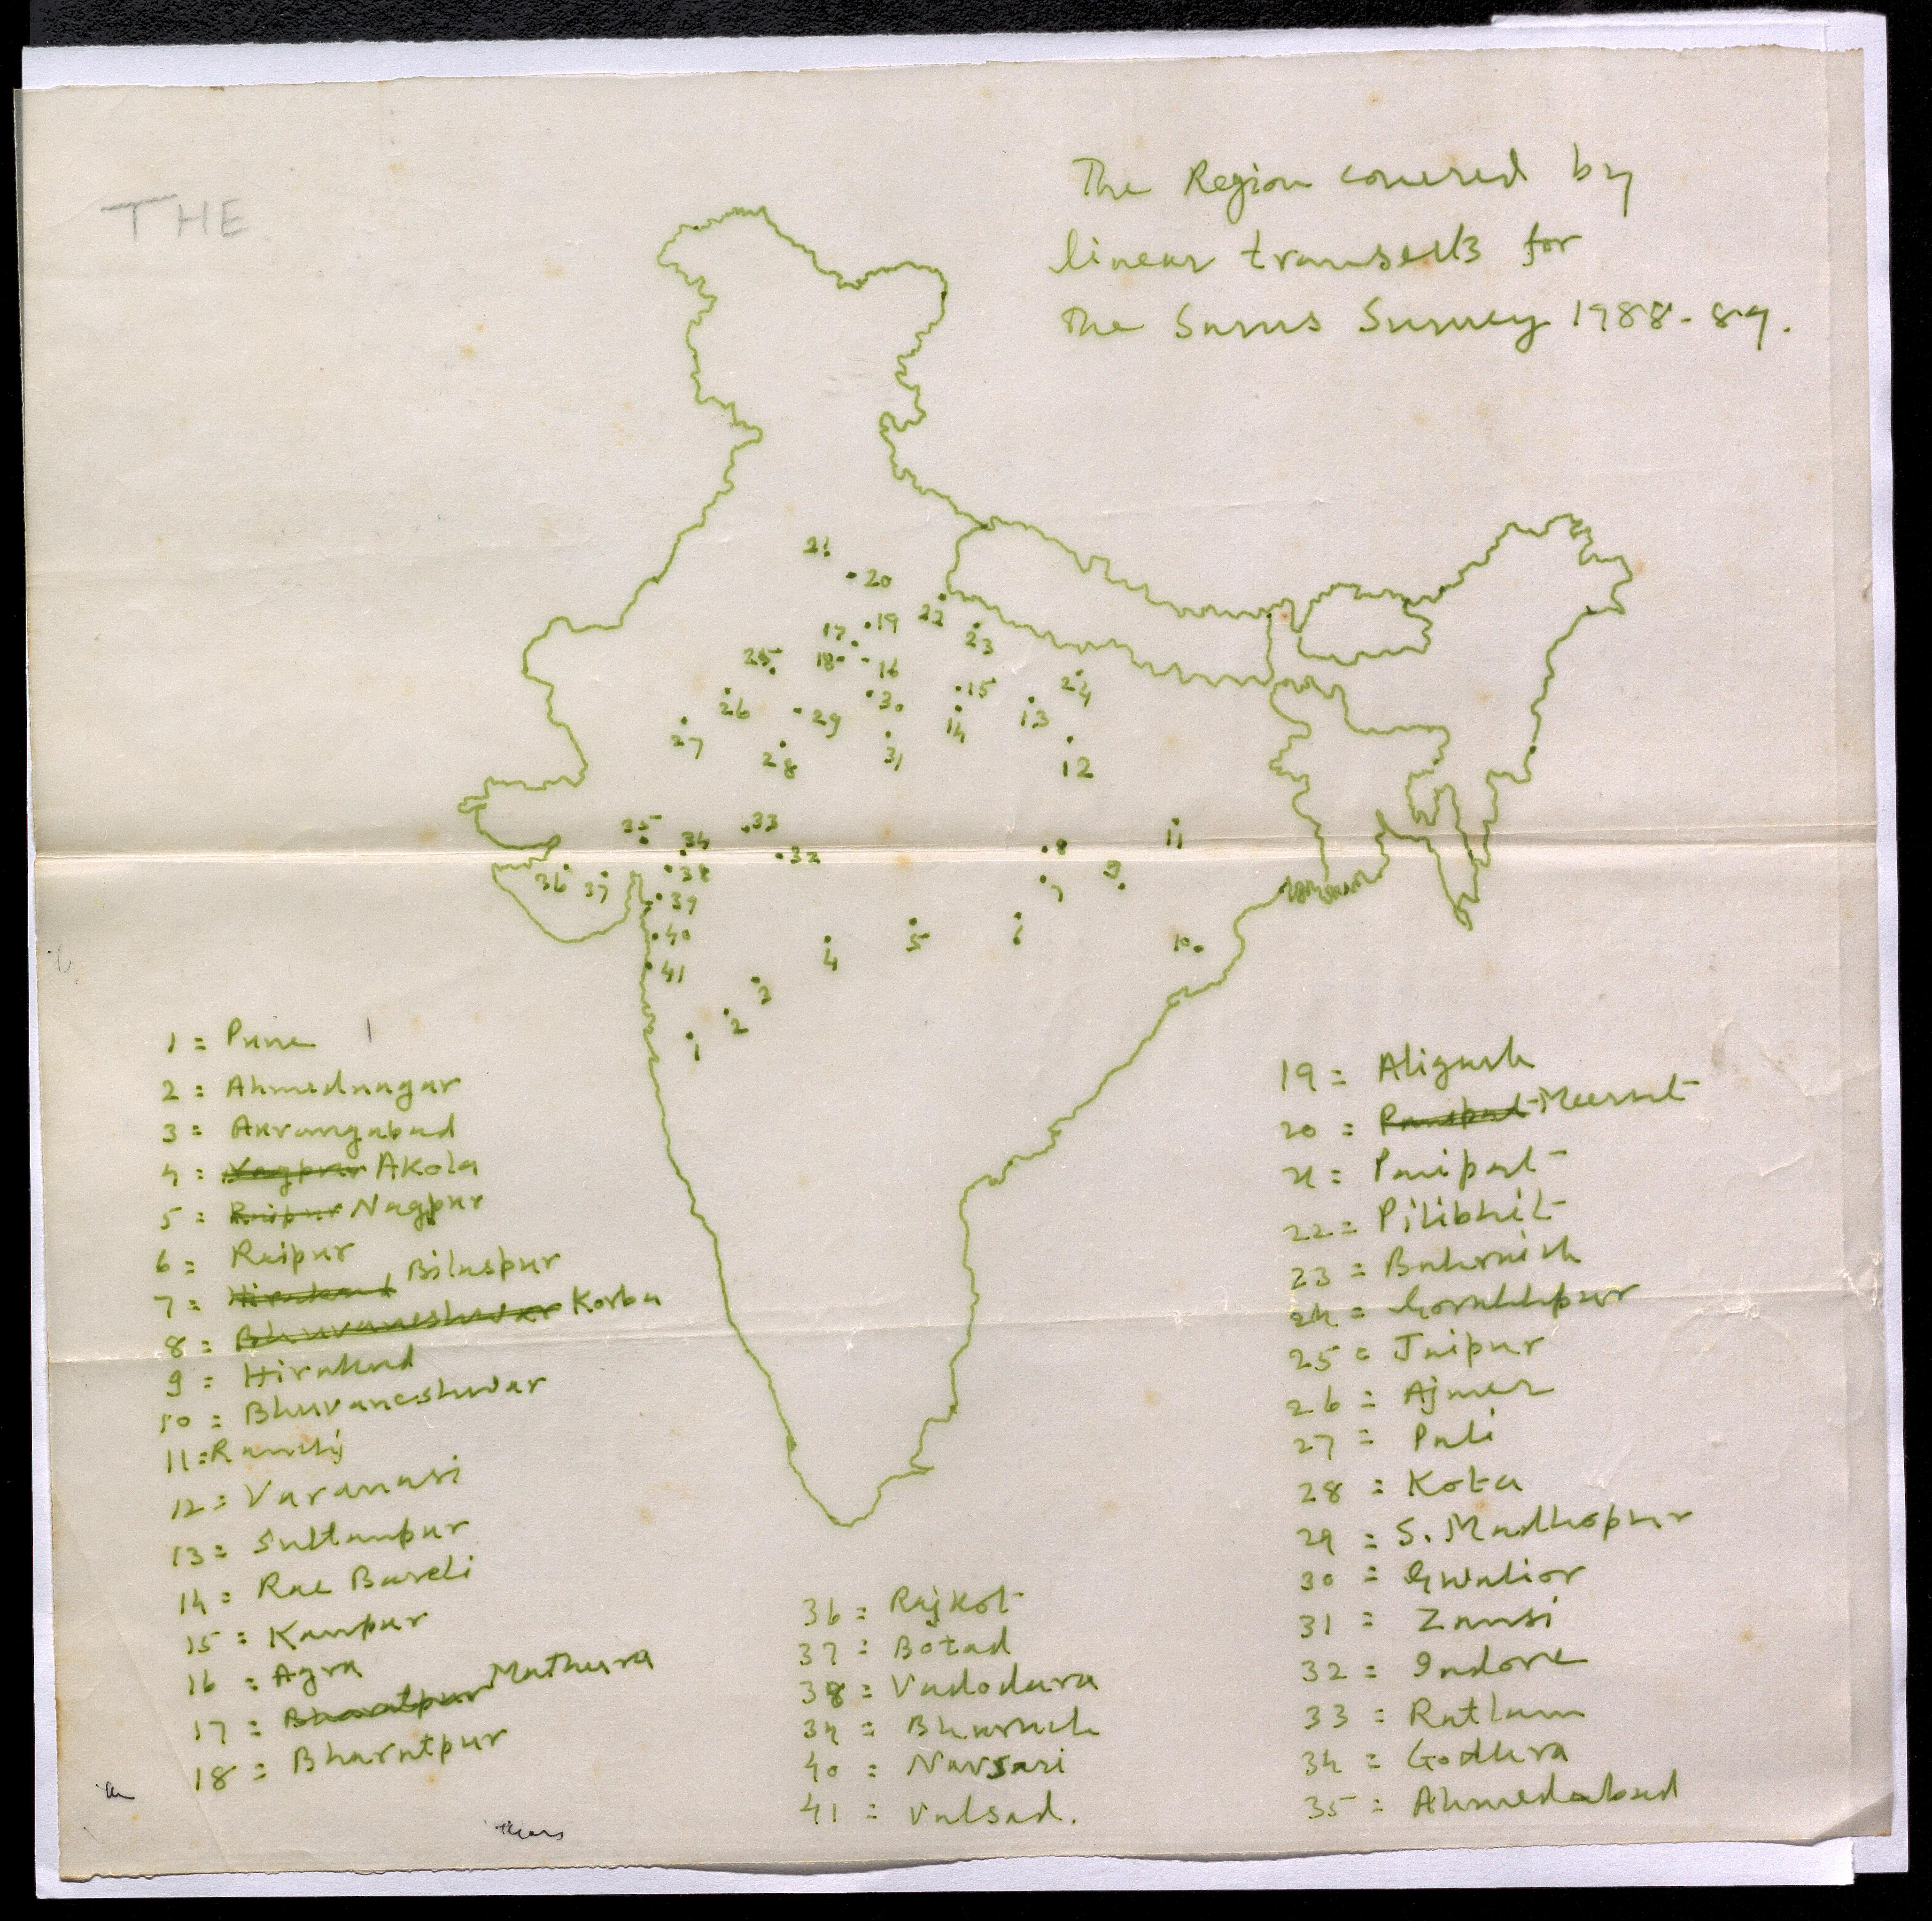 THE
The Region covered by
linear transects for
the Sarus Survey 1988-89.
21
20
19
22
17
23
25
18
16
24
15
26
30
29
14
13
27
28
31
12
35
33
34
32
8
11
36
37
38
7
9
39
40
4
5
6
10
41
3
2
1
1 = Pune
2 = Ahmednagar
3 = Aurangabad
4 = Nagpur Akola
5 = Raipur Nagpur
6 = Raipur
7 = Hirakud Bilaspur
8 = Bhuvaneshwar Korba
9 = Hirakud
10 = Bhuvaneshwar
11 = Ranchi
12 = Varanasi
13 = Sultanpur
14 = Rae Bareli
15 = Kanpur
16 = Agra
17 = Bharatpur Mathura
18 = Bharatpur
36 = Rajkot
37 = Botad
38 = Vadodara
39 = Bharuch
40 = Navsari
41 = Valsad.
19 = Aligarh
20 = Panipat Meerut
21 = Panipat
22 = Pilibhit
23 = Bahraich
24 = Gorakhpur
25 = Jaipur
26 = Ajmer
27 = Pali
28 = Kota
29 = S. Madhopur
30 = Gwalior
31 = Zansi
32 = Indore
33 = Ratlam
34 = Godhra
35 = Ahmedabad